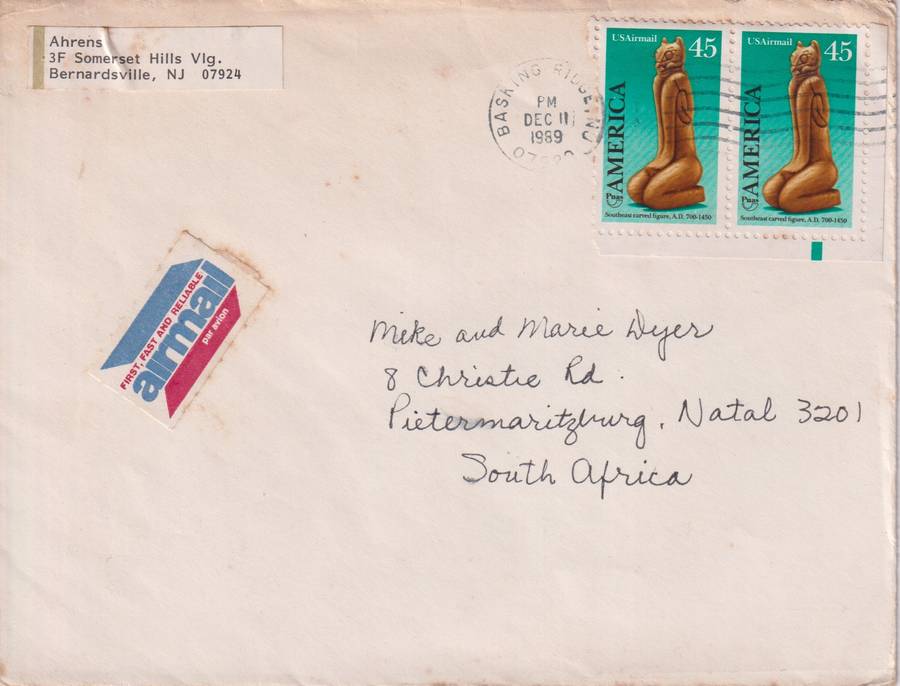 Ahrens
3F Somerset Hills Vlg.
Bernardsville, NJ 07924
BASKING RIDGE, NJ
PM
DEC 11
1989
USAirmail 45
AMERICA
Puas
Southeast carved figure, A.D. 700-1450
USAirmail 45
AMERICA
Puas
Southeast carved figure, A.D. 700-1450
FIRST, FAST AND RELIABLE
airmail
par avion
Mike and Marie Dyer
8 Christie Rd.
Pietermaritzburg, Natal 3201
South Africa